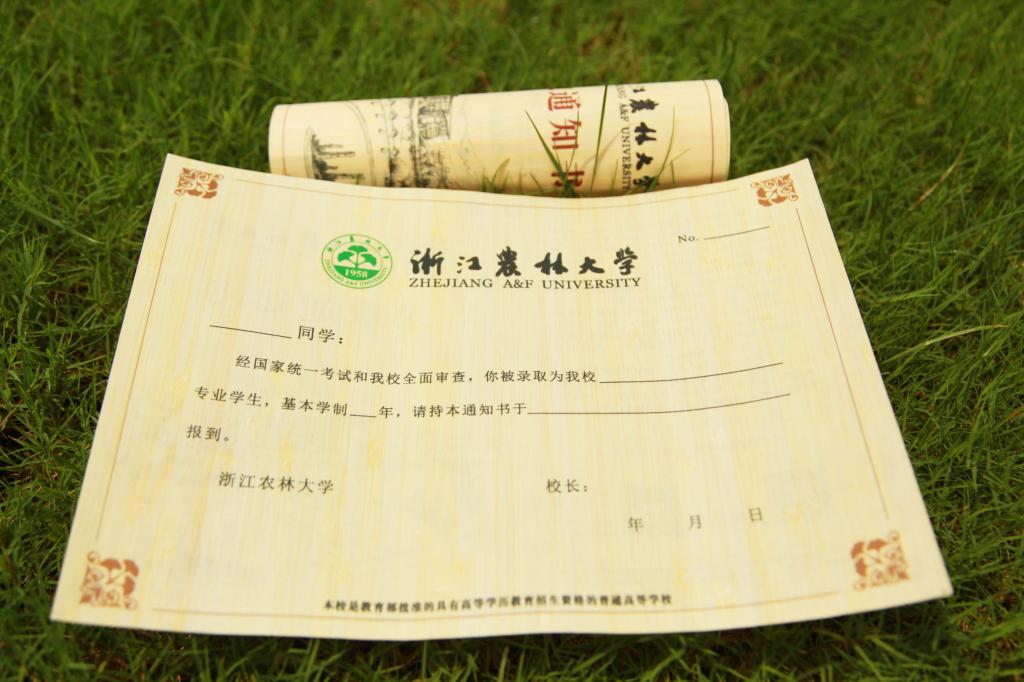 通知书
浙江农林大学
A&F UNIVERSITY
No.
浙江农林大学
ZHEJIANG A&F UNIVERSITY
1958
浙江农林大学
ZHEJIANG A&F UNIVERSITY
同学：
经国家统一考试和我校全面审查，你被录取为我校
专业学生，基本学制___年，请持本通知书于
报到。
浙江农林大学 校长：
年 月 日
本校是教育部批准的具有高等学历教育招生资格的普通高等学校